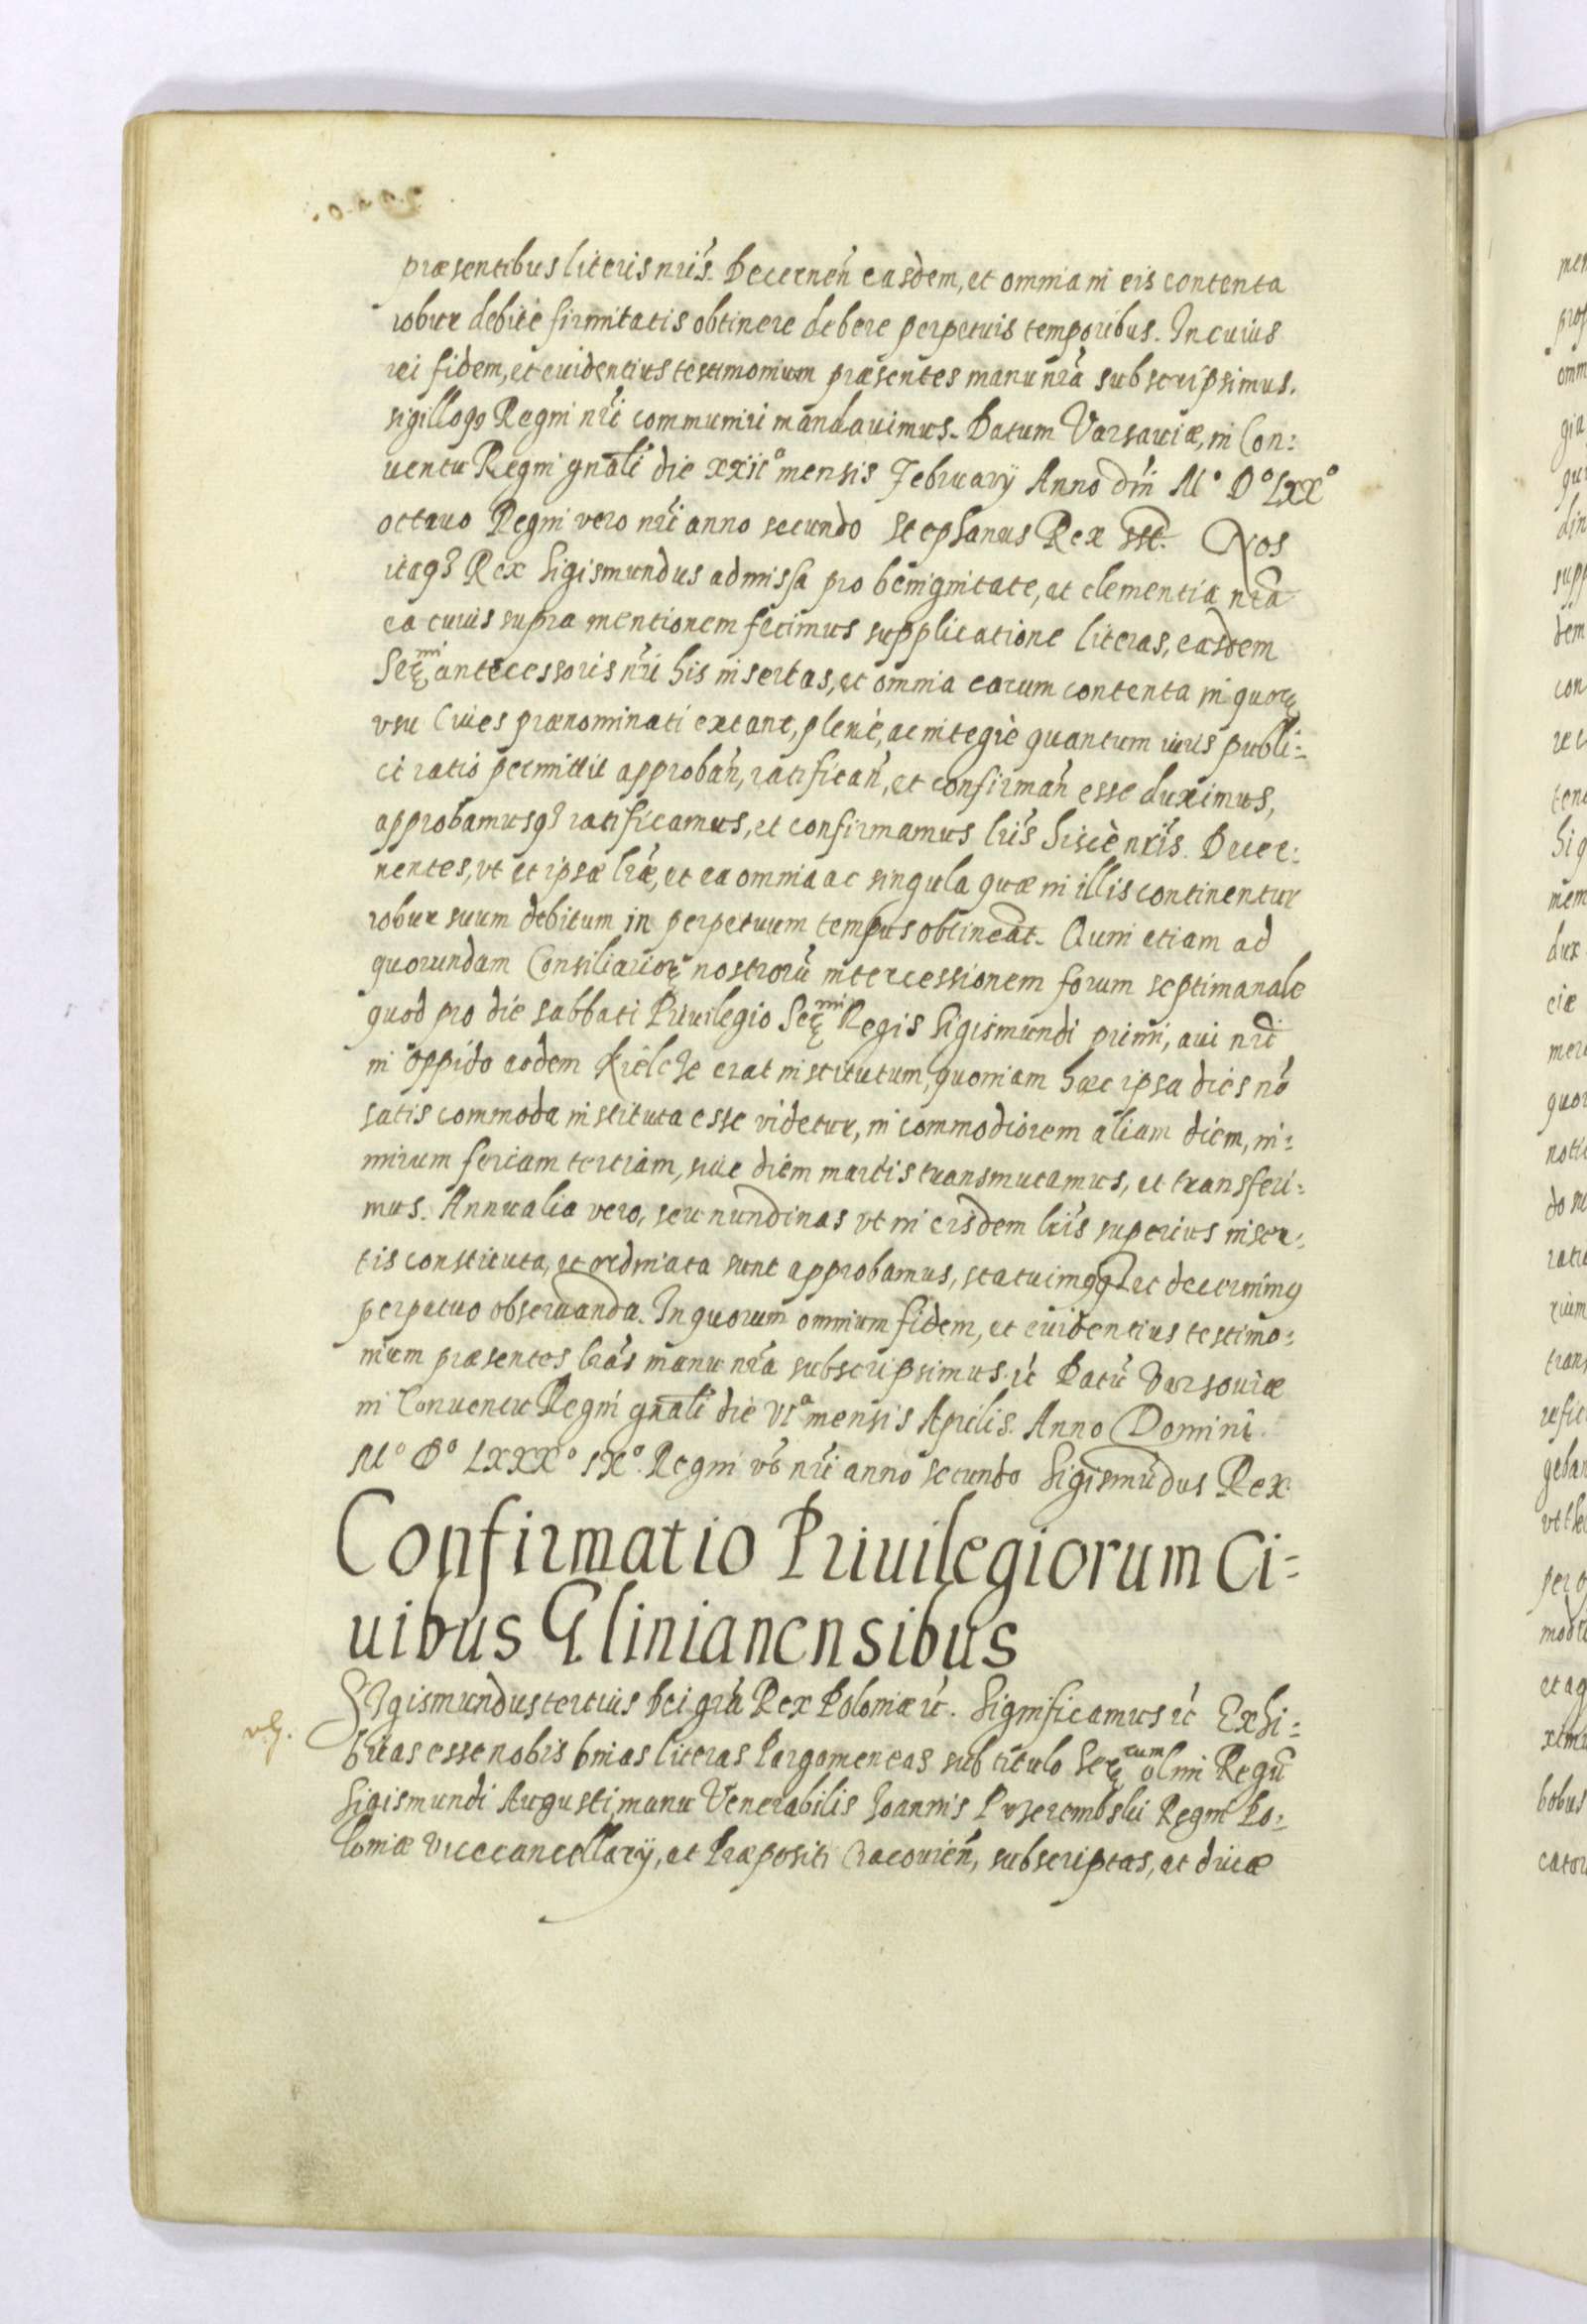 præsentibus literis nr̃is. Decernen̄ easdem, et omnia in eis contenta
robur debite firmitatis obtinere debere perpetuis temporibus. In cuius
rei fidem, et euidentius testimonium præsentes manu nr̃a subscripsimus.
sigilloq₃ Regni nr̃i communiri mandauimus. Datum Varsauiæ, in Con:
uentu Regni gn̄ali die xxiiº mensis February Anno dn̄i Mº Dº LXXº
octauo Regni vero nr̃i anno secundo Stephanus Rex sst. Nos
itaq₃ Rex Sigismundus admissa pro benignitate, et clementia nr̃a
ea cuius supra mentionem fecimus supplicatione literas, easdem
Serᵐⁱ antecessoris nr̃i his insertas, et omnia earum contenta in quorꝫ
vsu Ciues prænominati extant, plenè, ac integrè quantum iuris publi:
ci ratio permittit approban̄, ratifican̄, et confirman̄ esse duximus,
approbamusq₃ ratificamus, et confirmamus lr̃is hiscè nr̃is. Decer:
nentes, vt et ipsæ lr̃æ, et ea omnia ac singula quæ in illis continentur
robur suum debitum in perpetuum tempus obtineat. Quin etiam ad
quorundam Consiliariorꝫ nostrorū intercessionem forum septimanale
quod pro die sabbati Priuilegio Serᵐⁱ Regis Sigismundi primi, aui nr̃i
in oppido eodem Kielcze erat institutum, quoniam hæc ipsa dies nō
satis commoda instituta esse videtur, in commodiorem aliam diem, ni:
mirum feriam tertiam, siue diem martis transmutamus, et transferi:
mus. Annualia vero, seu nundinas vt in eisdem lr̃is superius inser:
tis constituta, et ordinata sunt approbamus, statuimꝰq₃ et decernimꝰ
perpetuo obseruanda. In quorum omnium fidem, et euidentius testimo:
nium præsentes lr̃as manu nr̃a subscripsimus. rc̄ Datū Varsouiæ
in Conuentu Regni gn̄ali die VIª mensis Aprilis. Anno Domini
Mº Dº LXXXº IXº. Regni vō nr̃i anno secundo Sigismūdus Rex
Confirmatio Priuilegiorum Ci=
uibus Glinianensibus
SIgismundus tertius Dei gr̃a Rex Poloniæ rc̄. Significamus rc̄ Exhi:
bitas esse nobis binas literas Pargameneas sub titulo Serʳᵘᵐ olim Regū
Sigismundi Augusti, manu Venerabilis Joannis Przerembski Regni Po:
loniæ Vicecancellarÿ, et Præpositi Cracouien̄, subscriptas, et